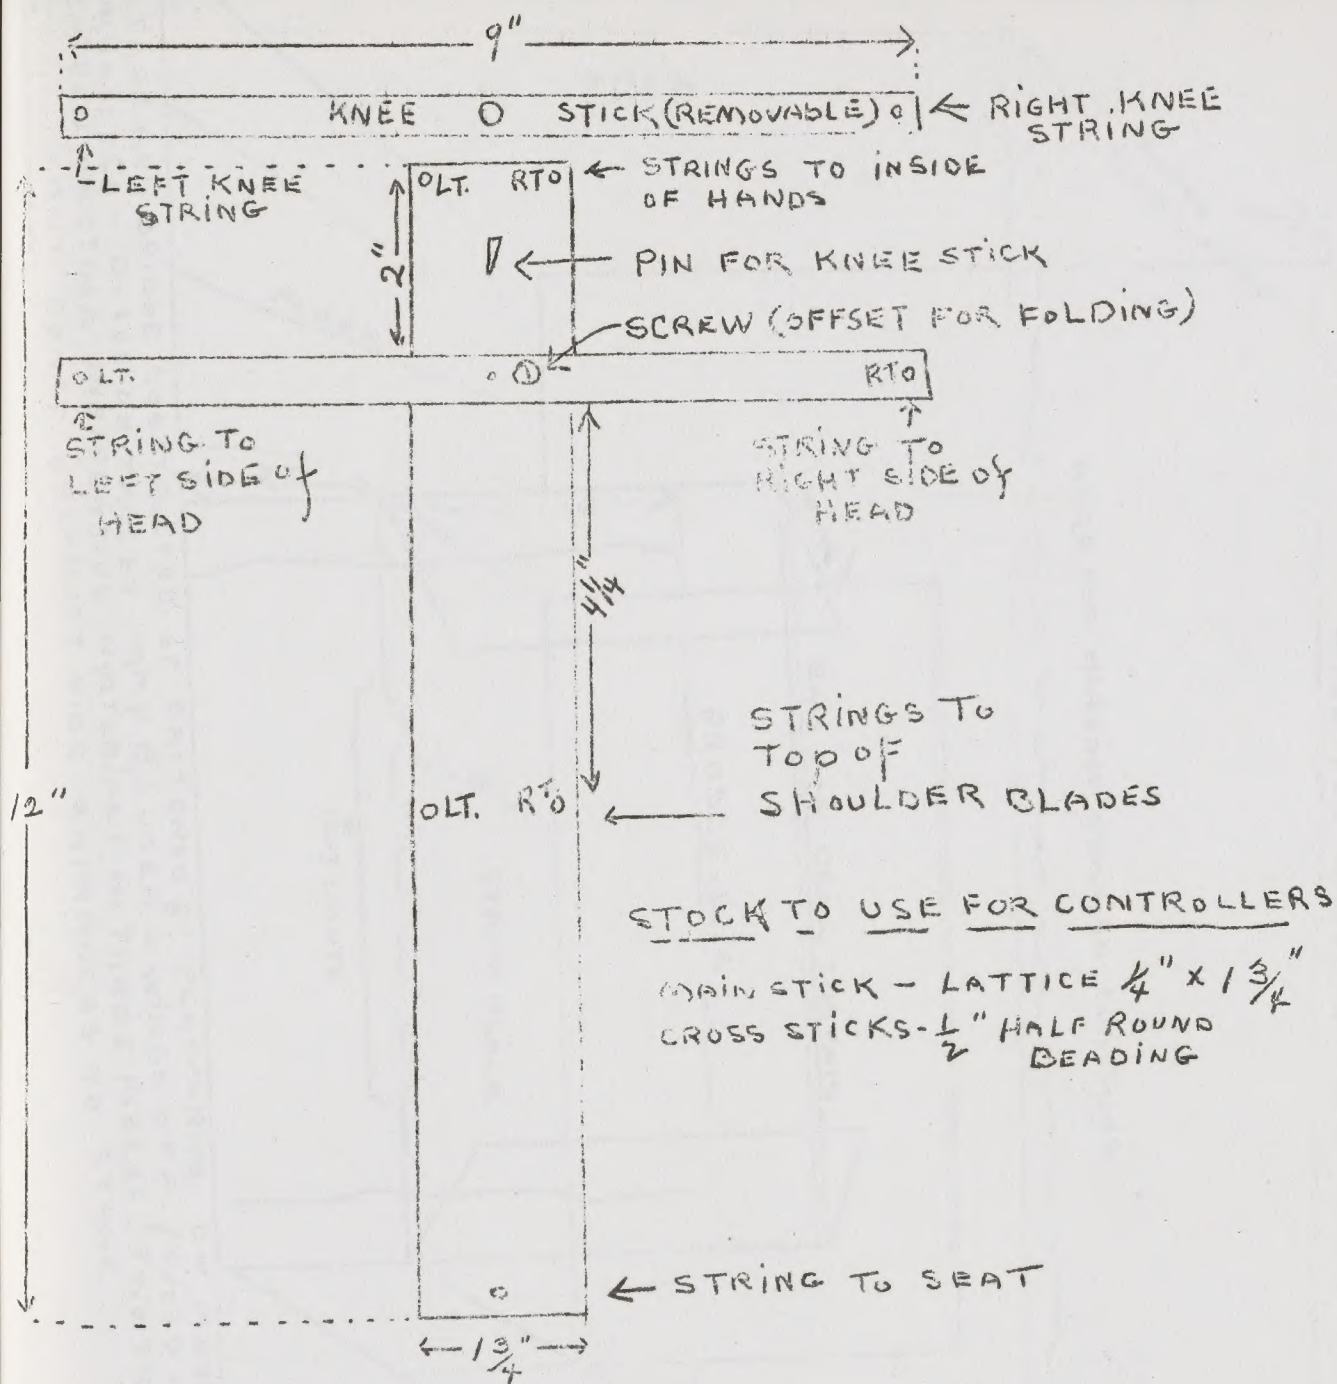 9"
KNEE STICK (REMOVABLE)
RIGHT KNEE
STRING
LEFT KNEE
STRING
LT. RT
STRINGS TO INSIDE
OF HANDS
2"
PIN FOR KNEE STICK
SCREW (OFFSET FOR FOLDING)
LT. RT
STRING TO
LEFT SIDE of
HEAD
STRING TO
RIGHT SIDE of
HEAD
4 1/4"
STRINGS TO
TOP OF
SHOULDER BLADES
12"
LT. RT
STOCK TO USE FOR CONTROLLERS
MAIN STICK - LATTICE 1/4" X 1 3/4"
CROSS STICKS - 1/2" HALF ROUND
BEADING
STRING TO SEAT
1 3/4"